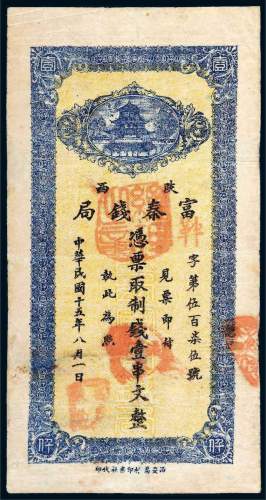 壹
壹
陝西
富秦錢局
字第伍百柒伍號
見票即付
憑票取制錢壹串文整
執此為照
中華民國十五年八月一日
仟
仟